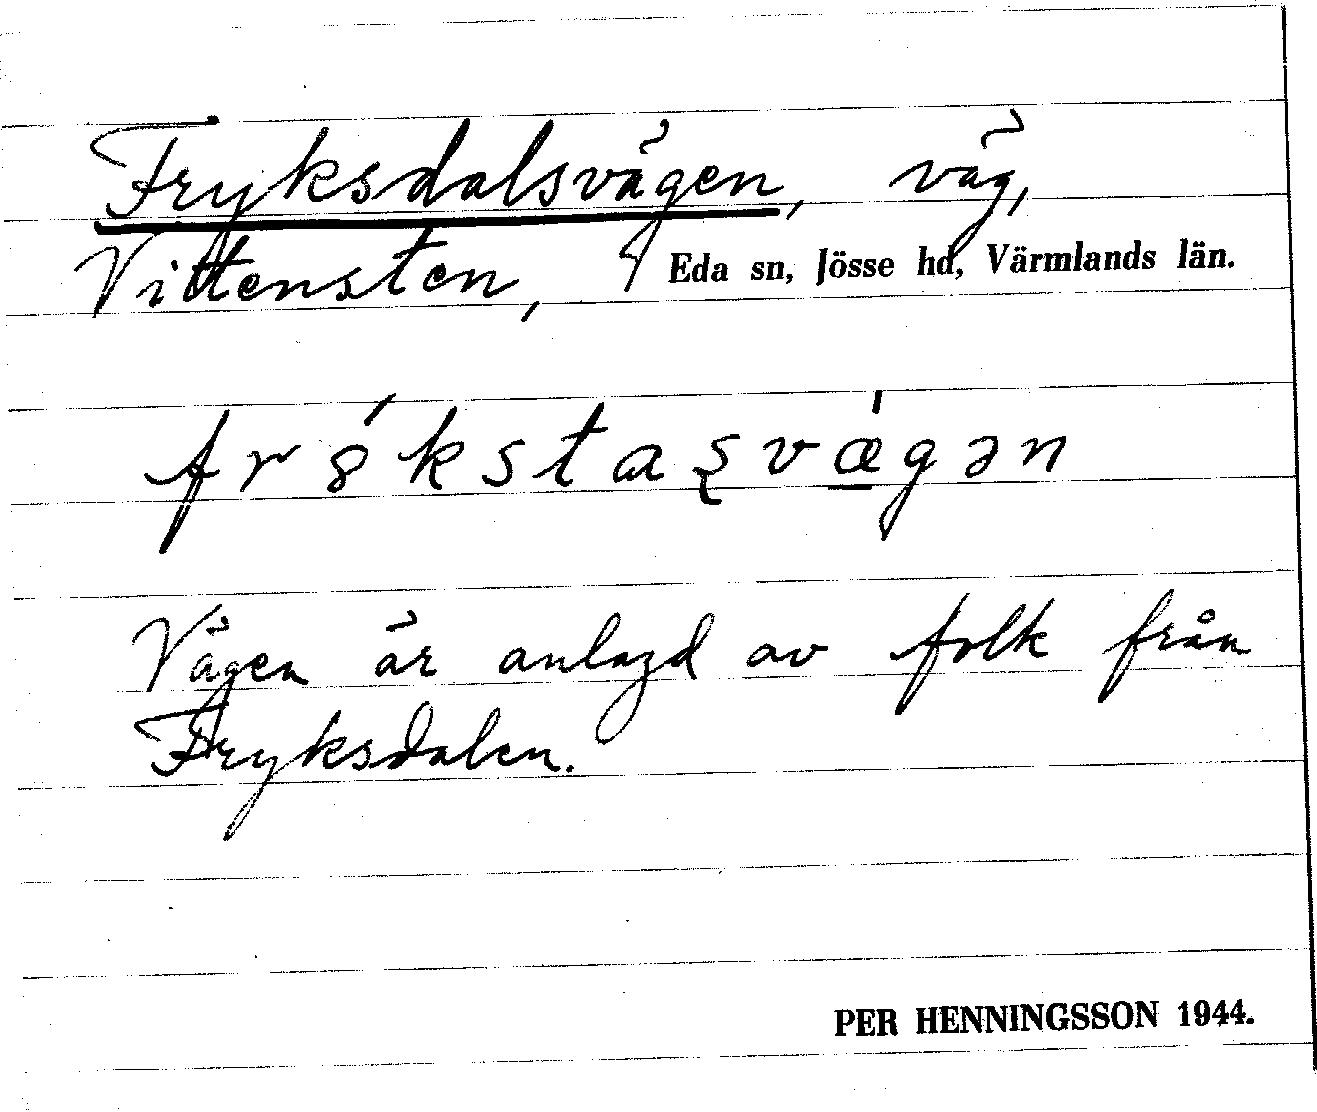 Fryksdalsvägen, väg,
Vittensten, Eda sn, Jösse hd, Värmlands län.
fr8́kstaʂvæ̲̍gən
Vägen är anlagd av folk från
Fryksdalen.
PER HENNINGSSON 1944.